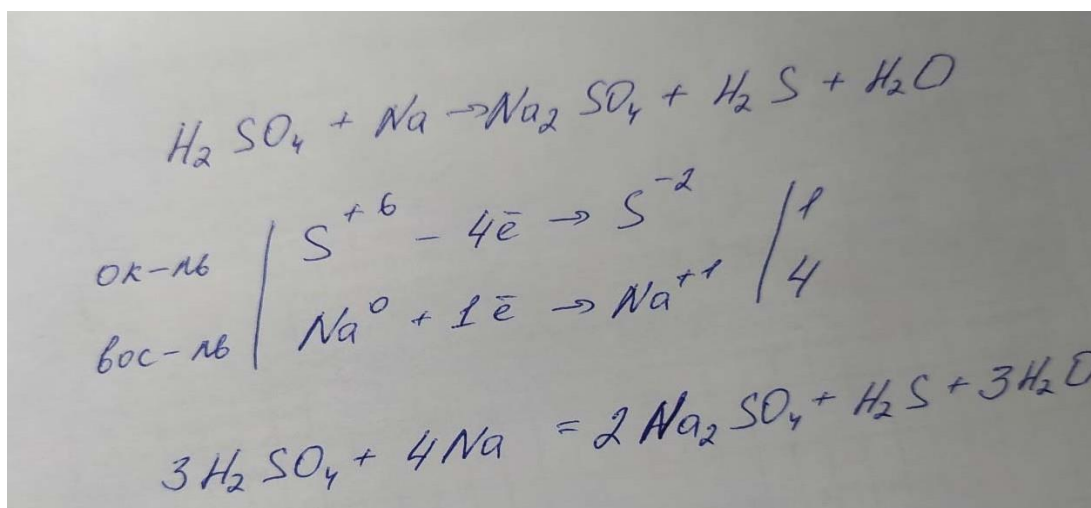 H₂SO₄ + Na → Na₂SO₄ + H₂S + H₂O
ок-ль | S⁺⁶ - 4ē → S⁻² | 1
вос-ль | Na⁰ + 1ē → Na⁺¹ | 4
3H₂SO₄ + 4Na = 2Na₂SO₄ + H₂S + 3H₂O